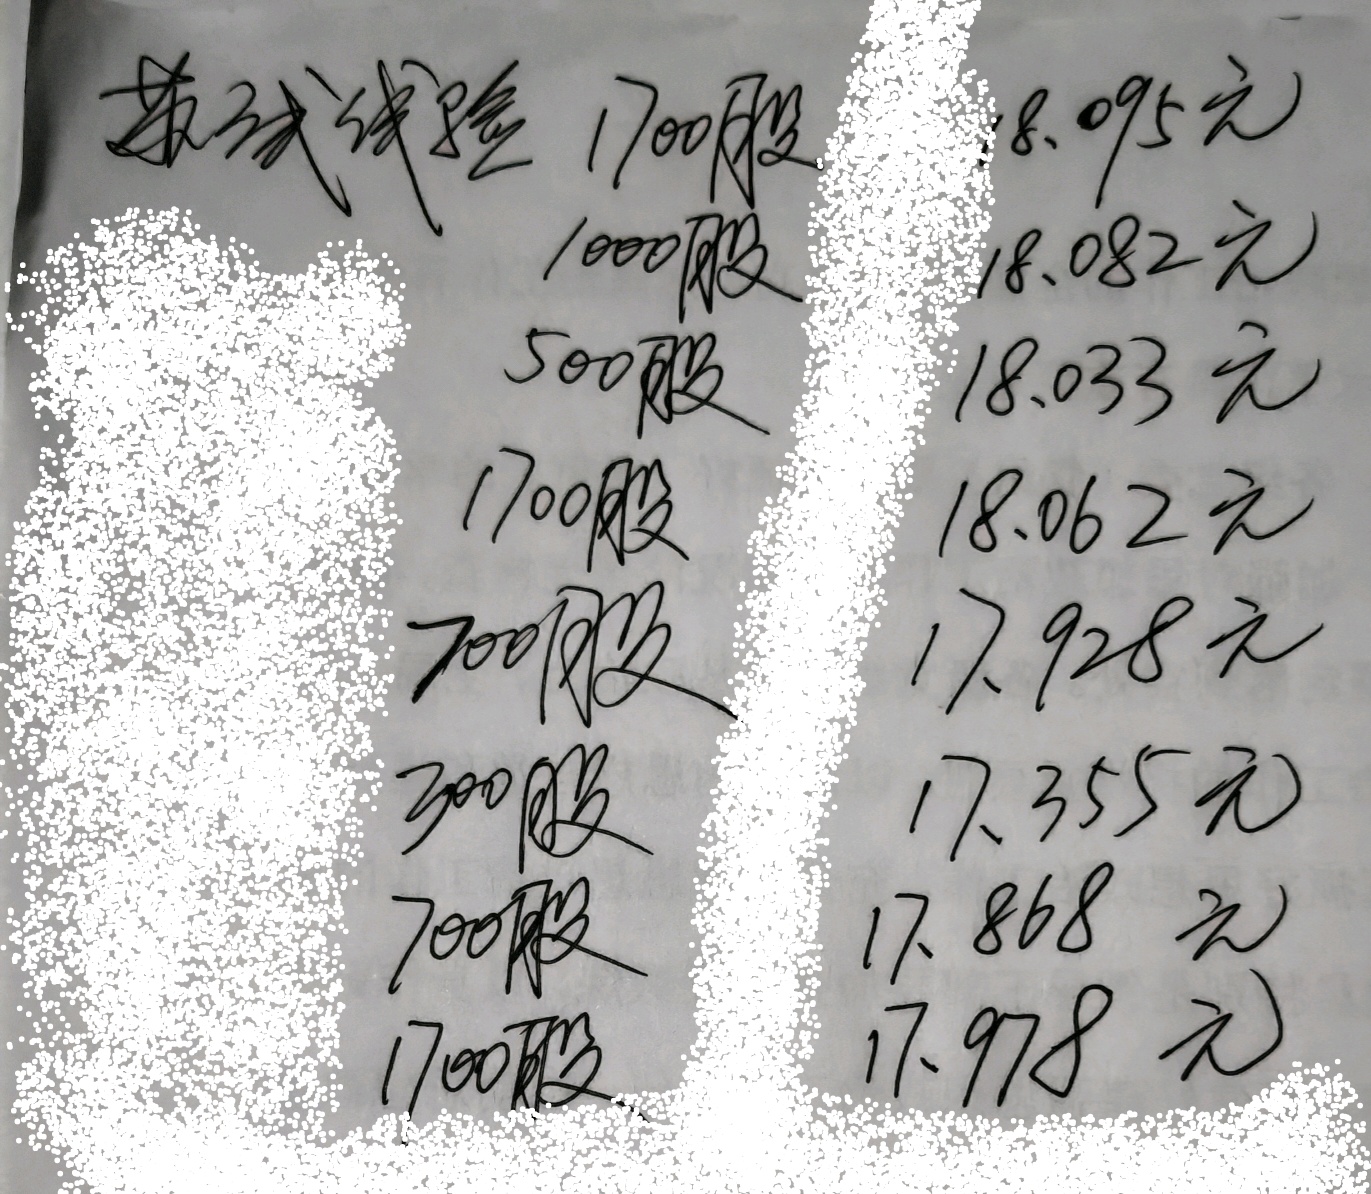 苏试试验 1700股 18.095元
1000股 18.082元
500股 18.033元
1700股 18.062元
700股 17.928元
300股 17.355元
700股 17.868元
1700股 17.978元